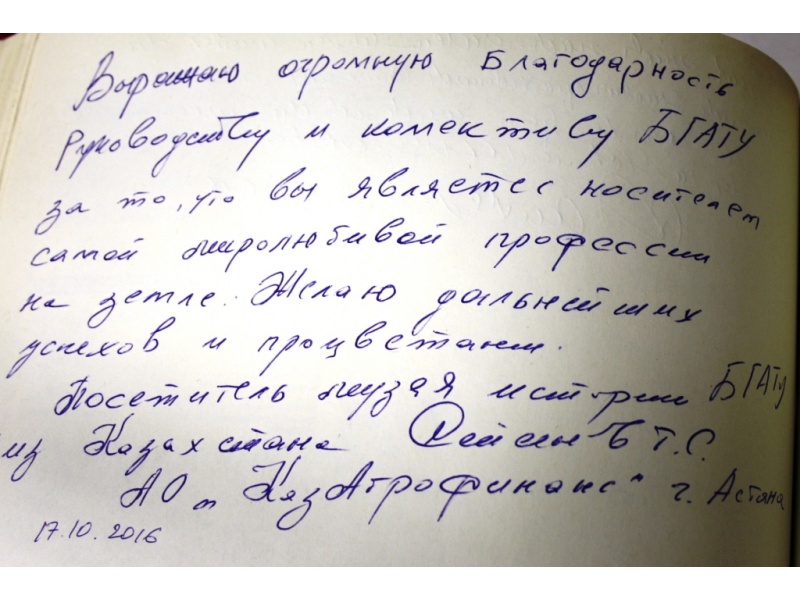 Выражаю огромную Благодарность
Руководству и колективу БГАТУ
за то, что вы являетес носителем
самой миролюбивой профессии
на земле. Желаю дальнейших
успехов и процветании.
Посетитель музая истории БГАТУ
из Казахстана Т.С.
АО „КазАгрофинанс" г. Астана
17.10.2016